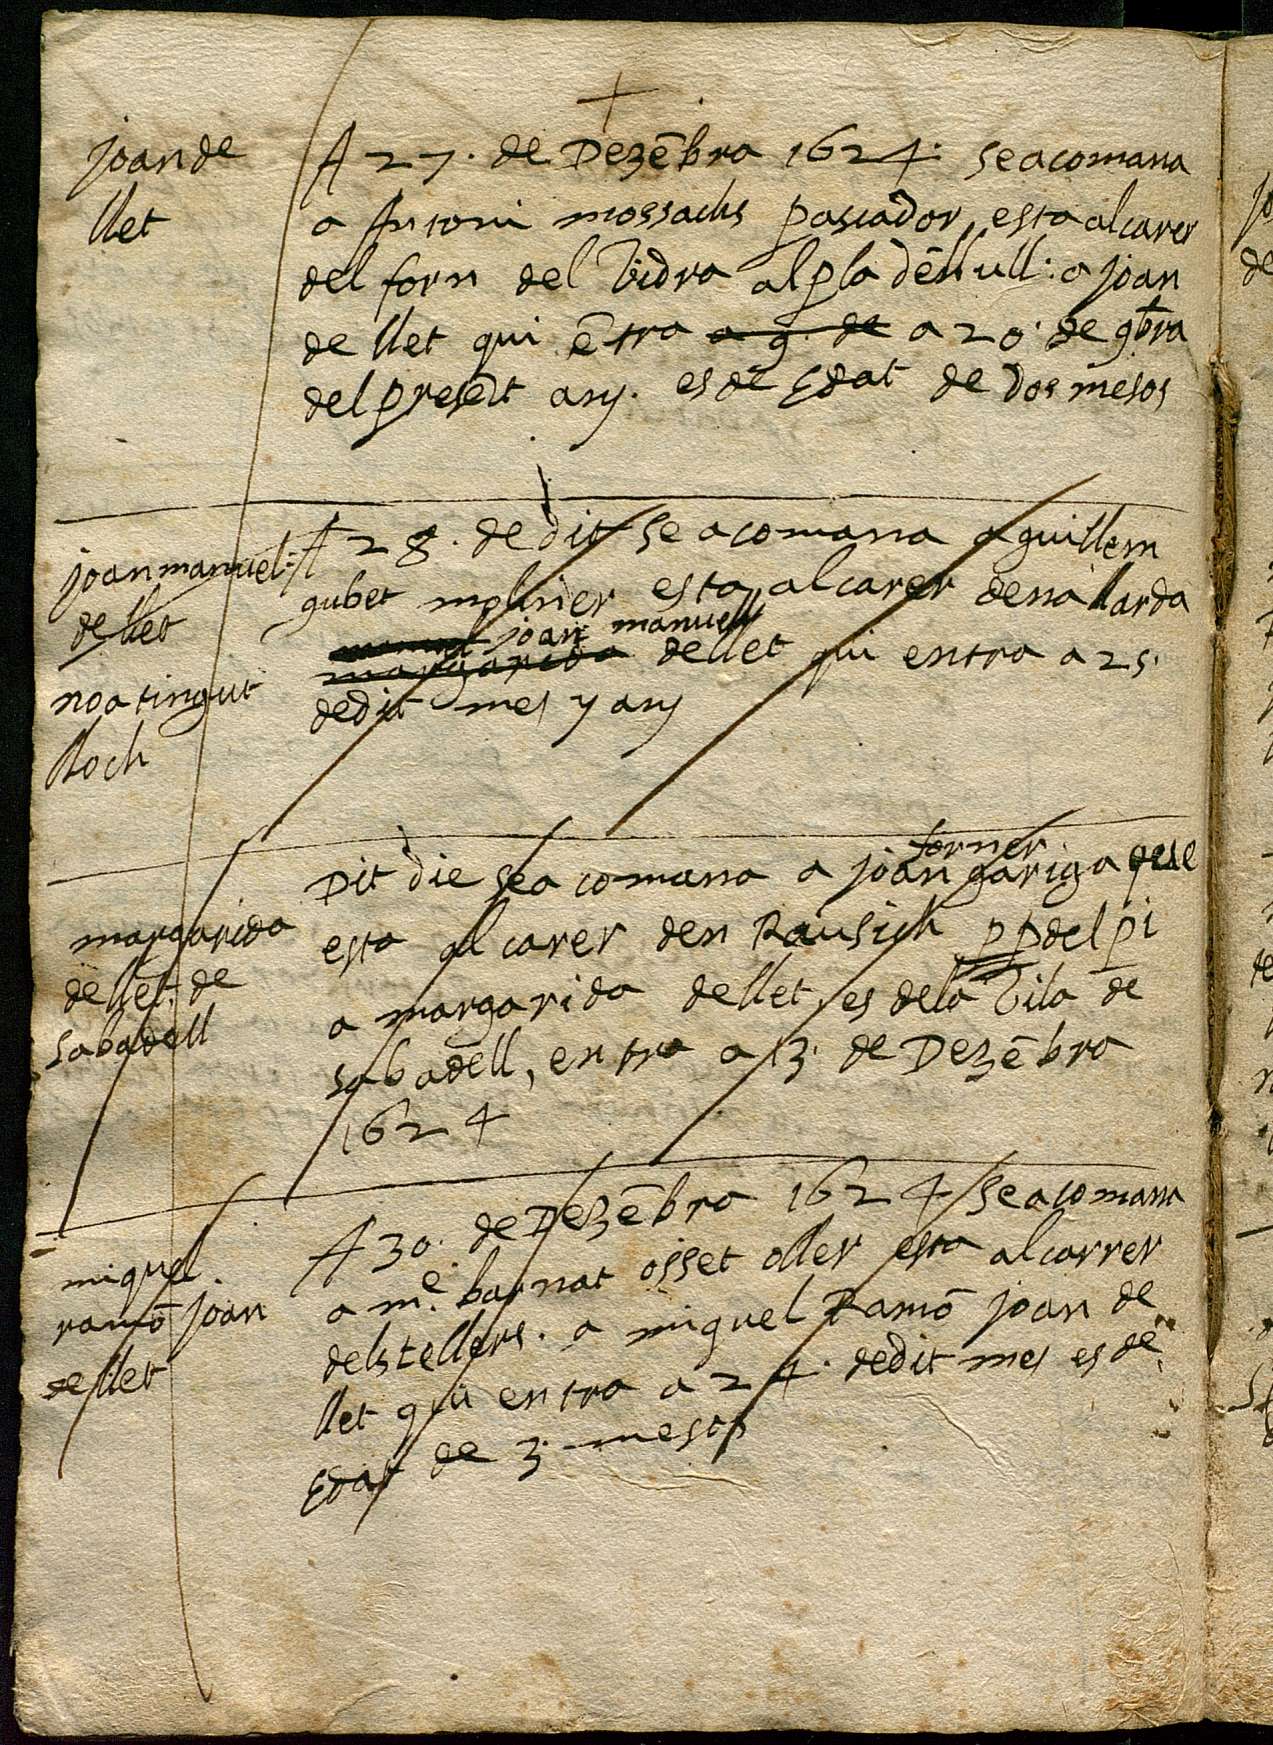 +
joan de
llet
A 27. de Dezēbra 1624. se acomana
a Antoni mossachs pascador, esta al carer
del forn del Vidra al pla dēllull. a joan
de llet qui ētra a 9 de a 20. de 9bra
del presēt any. es de Edat de dos mesos
joan manuel.
de llet
no a tingut
lloch
A 28. de dit se acomana a guillem
gubet molinier esta al carer dena llarda
joan manuell
margarida de llet qui entra a 25.
de dit mes y any
margarida
de llet. de
sabadell
forner
Dit die se a comana a joan gariga
esta al carer den Rausich pp del pi
a margarida de llet, es dela Vila de
sabadell, entra a 13. de Dezēbra
1624
miquel.
ramō joan
de llet
A 30. de Dezēbra 1624 se acomana
a m.e barnat osset oller esta al carrer
dels tellers. a miquel Ramō joan de
llet qui entra a 24. de dit mes es de
Edat de 3. mesos